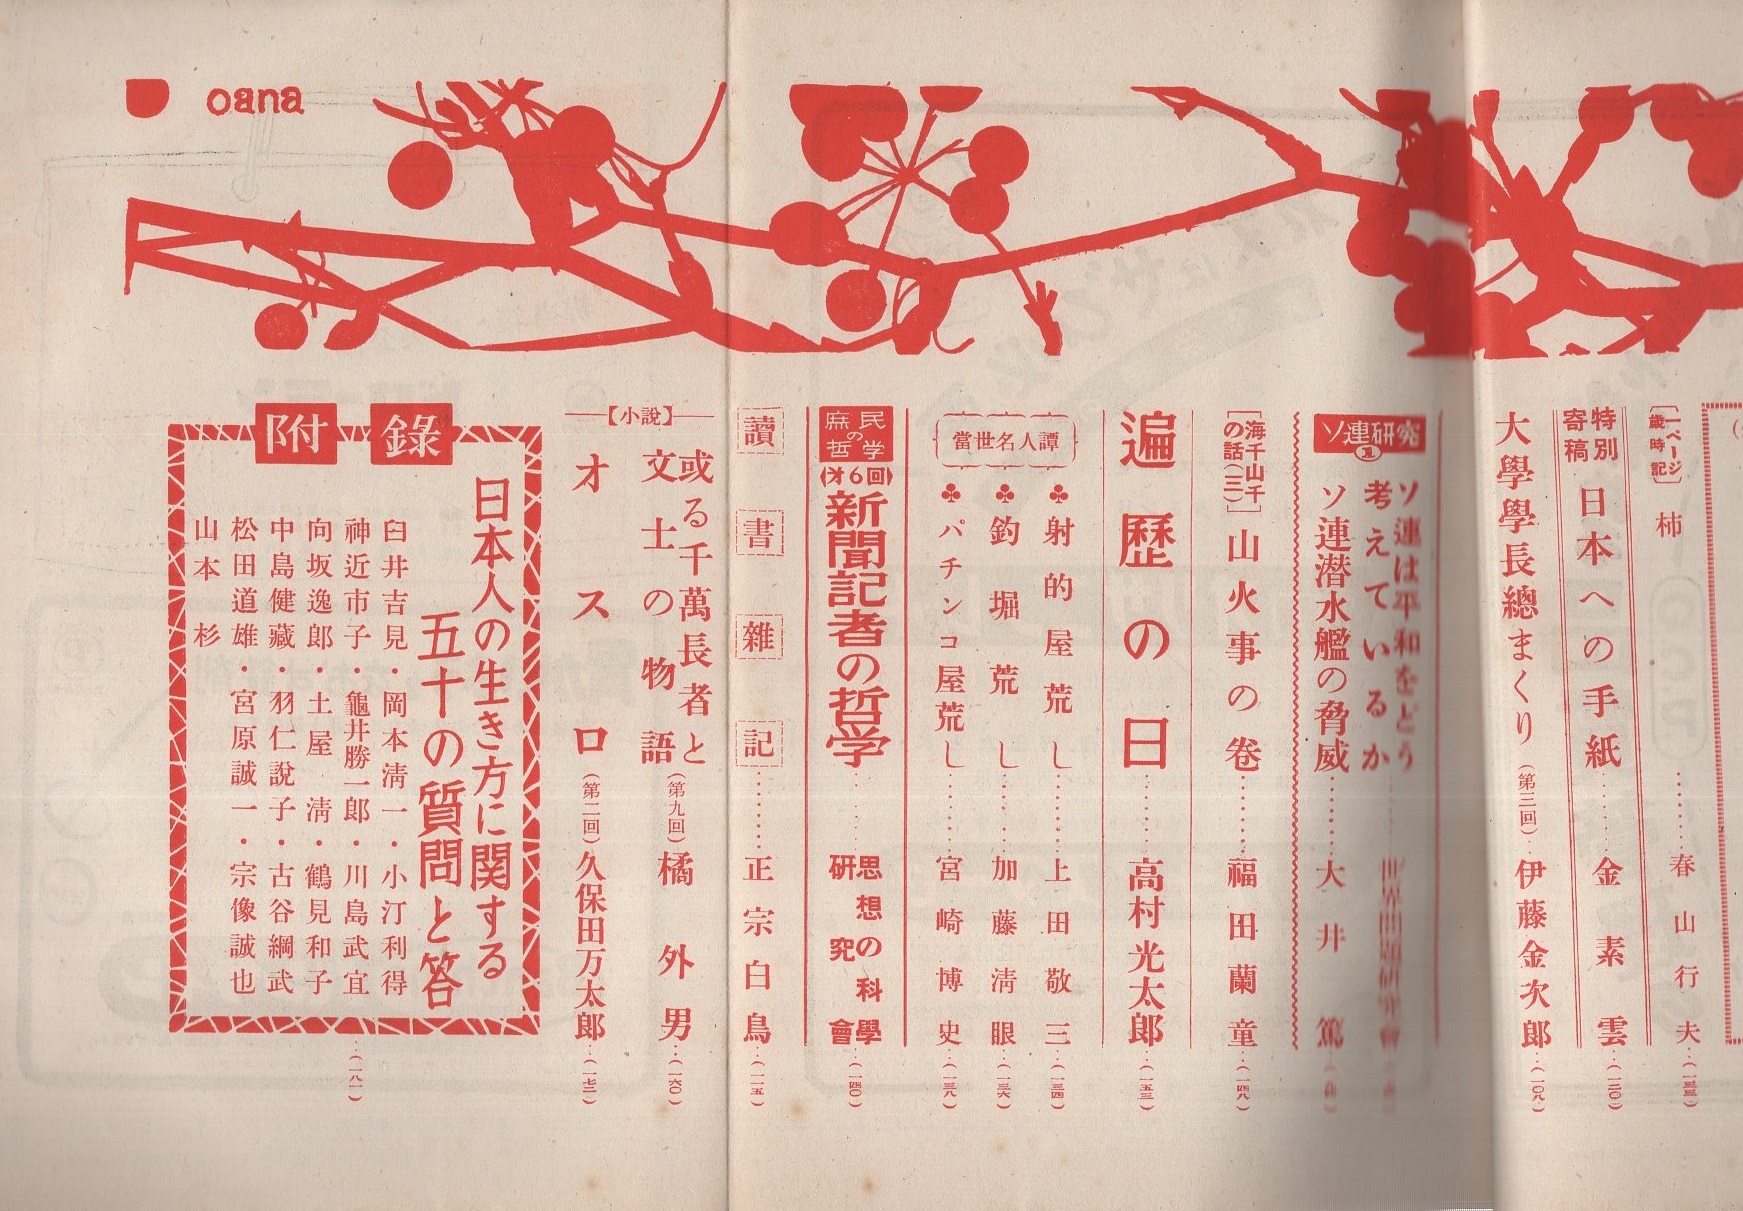 oana
【一ページ歳時記】
柿……春山行夫…(一三三)
特別寄稿
日本への手紙……金素雲…(一一〇)
大學學長總まくり(第三回)…伊藤金次郎…(一〇八)
ソ連研究
ソ連は平和をどう
考えているか……世界問題研究會
ソ連潜水艦の脅威……大井篤
[海千山千の話(三)]
山火事の卷……福田蘭童…(一四八)
遍歴の日……高村光太郎…(一五三)
當世名人譚
♣射的屋荒し……上田敬三…(一三四)
♣釣堀荒し……加藤淸眼…(一三六)
♣パチンコ屋荒し……宮崎博史…(一三八)
庶民の哲学
(才6回)
新聞記者の哲学……思想の科學研究會…(一四〇)
讀書雜記……正宗白鳥…(一一五)
【小説】
或る千萬長者と
文士の物語(第九回)橘外男…(一六〇)
オスロ(第二回)久保田万太郎…(一七二)
附錄
日本人の生き方に関する
五十の質問と答
臼井吉見・岡本淸一・小汀利得
神近市子・龜井勝一郎・川島武宜
向坂逸郎・土屋淸・鶴見和子
中島健藏・羽仁說子・古谷綱武
松田道雄・宮原誠一・宗像誠也
山本杉
…(一八一)